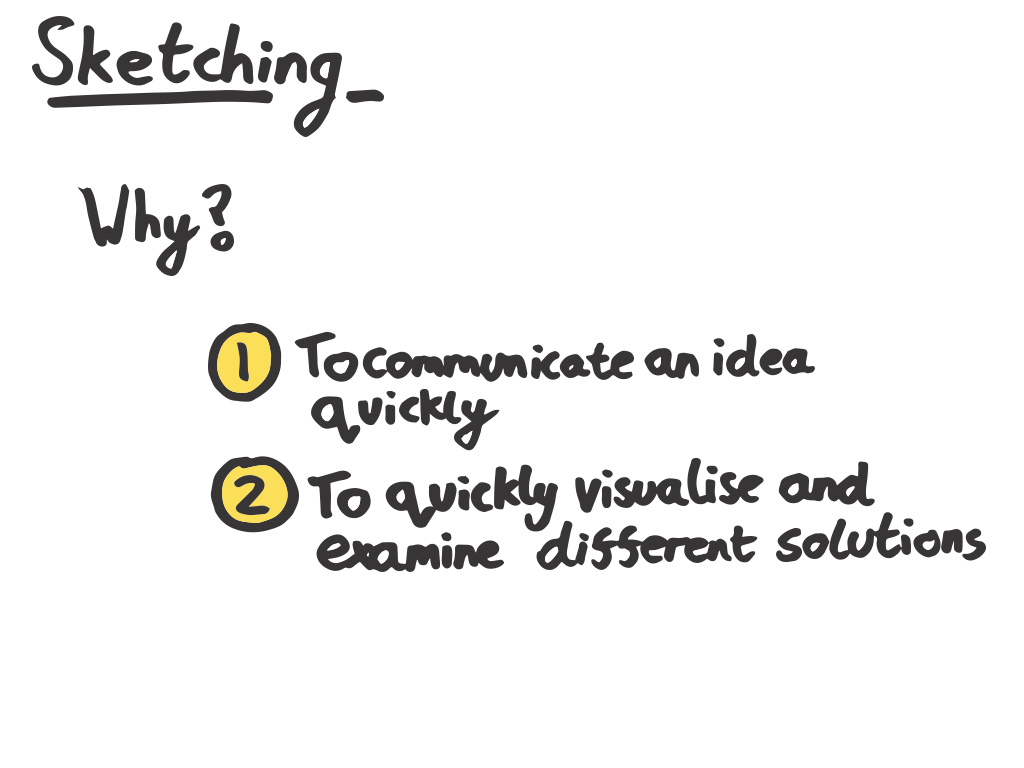 Sketching_
Why?
1 To communicate an idea
quickly
2 To quickly visualise and
examine different solutions